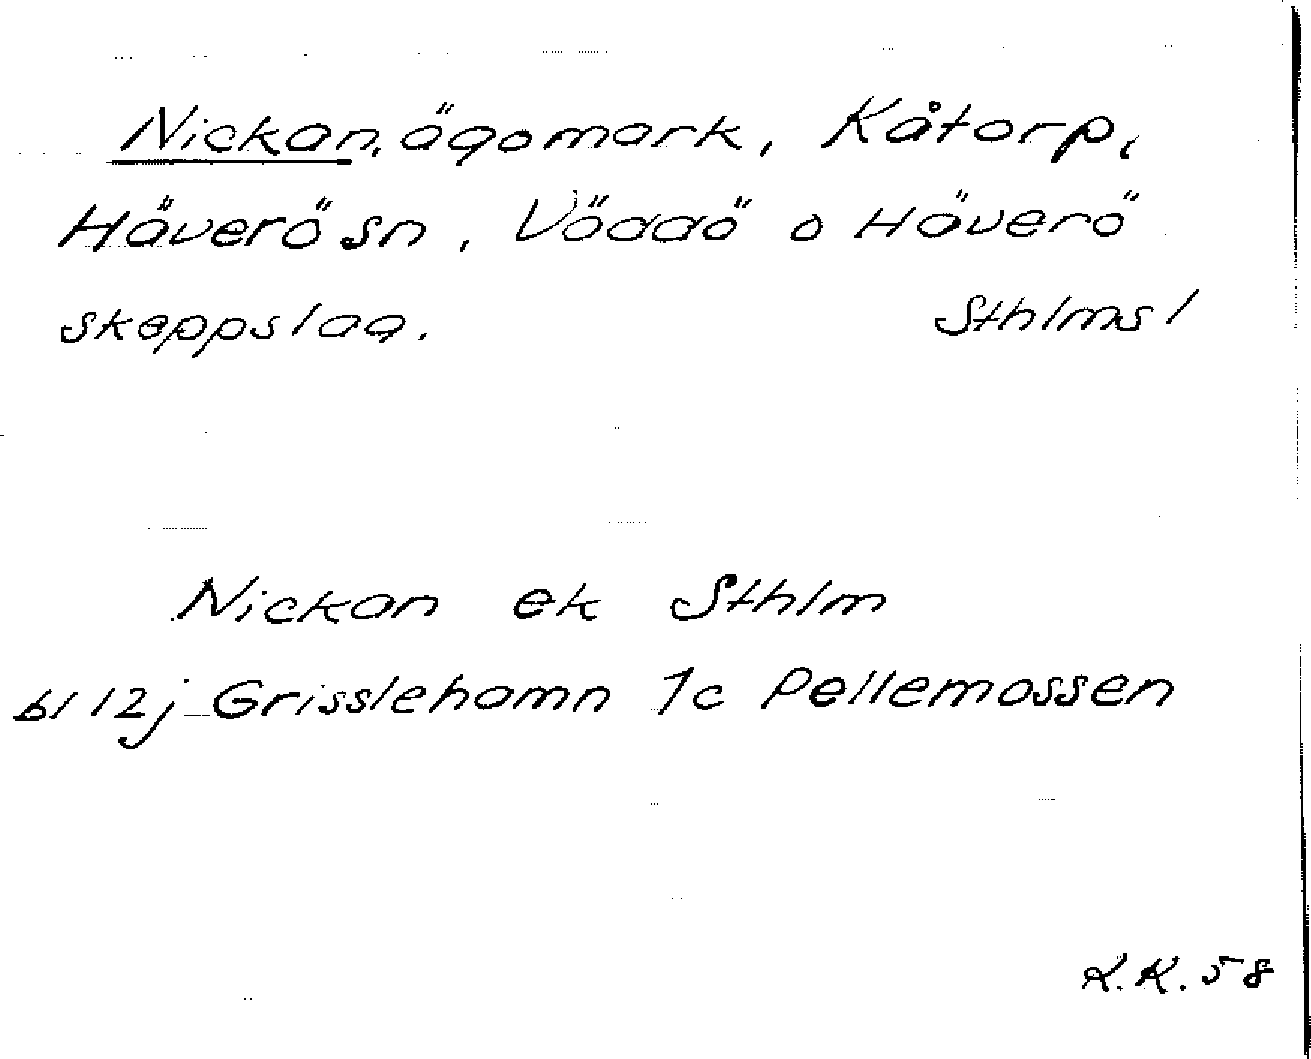 Nickan, ägomark, Kåtorp,
Häverö sn, Väddö o Häverö
skeppslag. Sthlms l
Nickan ek Sthlm
bl 12j Grisslehamn 1c Pellemossen
R.K. 58